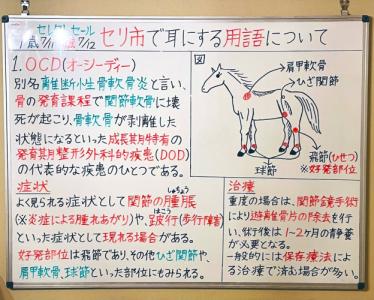 セレクトセール
1歳7/11 7/12 セリ市で耳にする用語について
1.OCD(オーシーディー)
別名離断小生骨軟骨炎と言い、
骨の発育課程で関節軟骨に壊
死が起こり、骨軟骨が剥離した
状態になるといった成長其月特有の
発育其月整形外科的疾患(DOD)
の代表的な疾患のひとつである。
図
肩甲軟骨
ひざ関節
球節
飛節(ひせつ)
※好発部位
症状
しゅちょう
よく見られる症状として関節の腫脹
はこう
(※炎症による腫れあがり)や、跛行(歩行障害)
といった症状として現れる場合がある。
好発部位は飛節であり、その他ひざ関節や、
肩甲軟骨、球節といった部位にもみられる。
治療
重度の場合は、関節鏡手術
により遊離骨片の除去を行
い、術後は1~2ヶ月の静養
が必要となる。
一般的には保存療法によ
る治療で済む場合が多い。